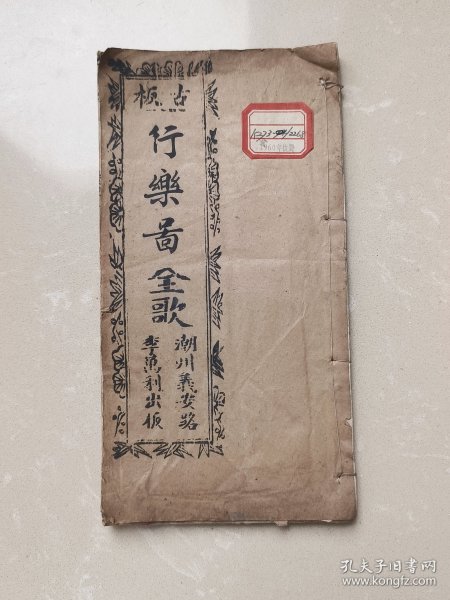 古板
行樂啚全歌
潮州義安路
李萬利出版
1960年估點
孔夫子旧书网
www.kongfz.com